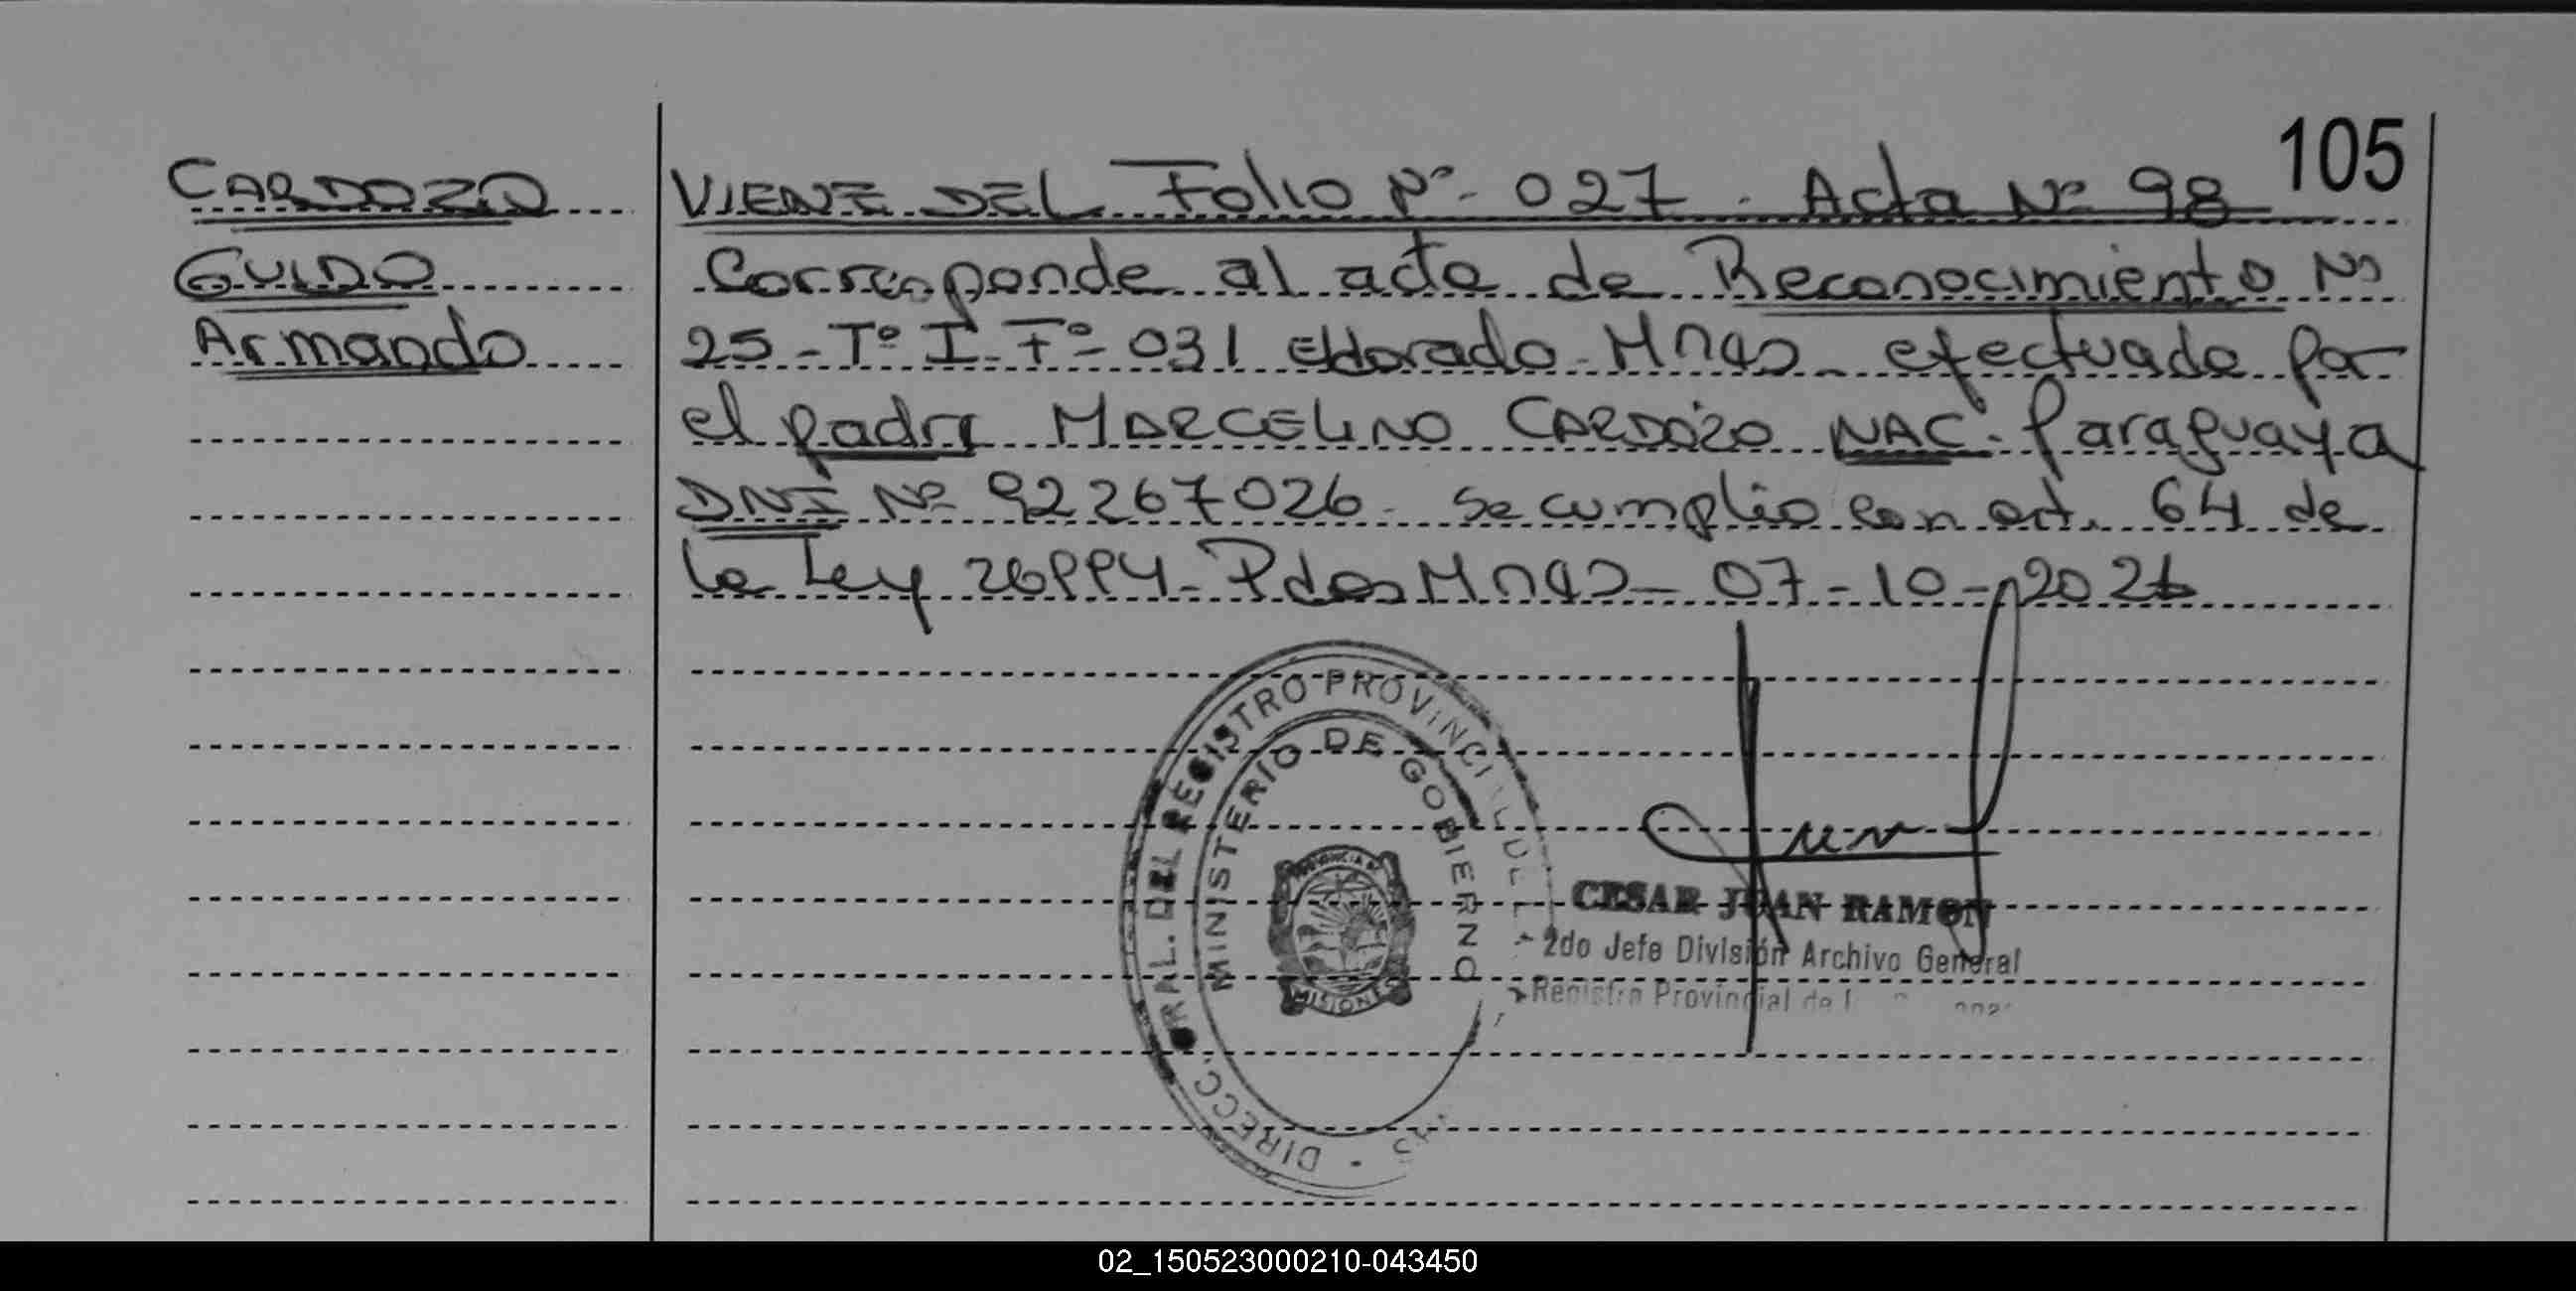 105
CARDOZO
GUIDO
Armando
VIENE DEL Folio Nº 027 - Acta Nº 98
Corresponde al acta de Reconocimiento Nº
25 - Tº I - Fº - 031 Eldorado - Mnes - efectuada por
el padre MARCELINO CARDOZO NAC. Paraguaya
DNI Nº 92267026 - Se cumplio con art. 64 de
la Ley 26994 - Pdas Mnes - 07 - 10 -
DIRECC. GRAL. DEL REGISTRO PROVINCIAL DE L
MINISTERIO DE GOBIERNO
PROVINCIA DE
MISIONES
CESAR JUAN RAMON
2do Jefe División Archivo General
Registro Provincial de l
02_150523000210-043450